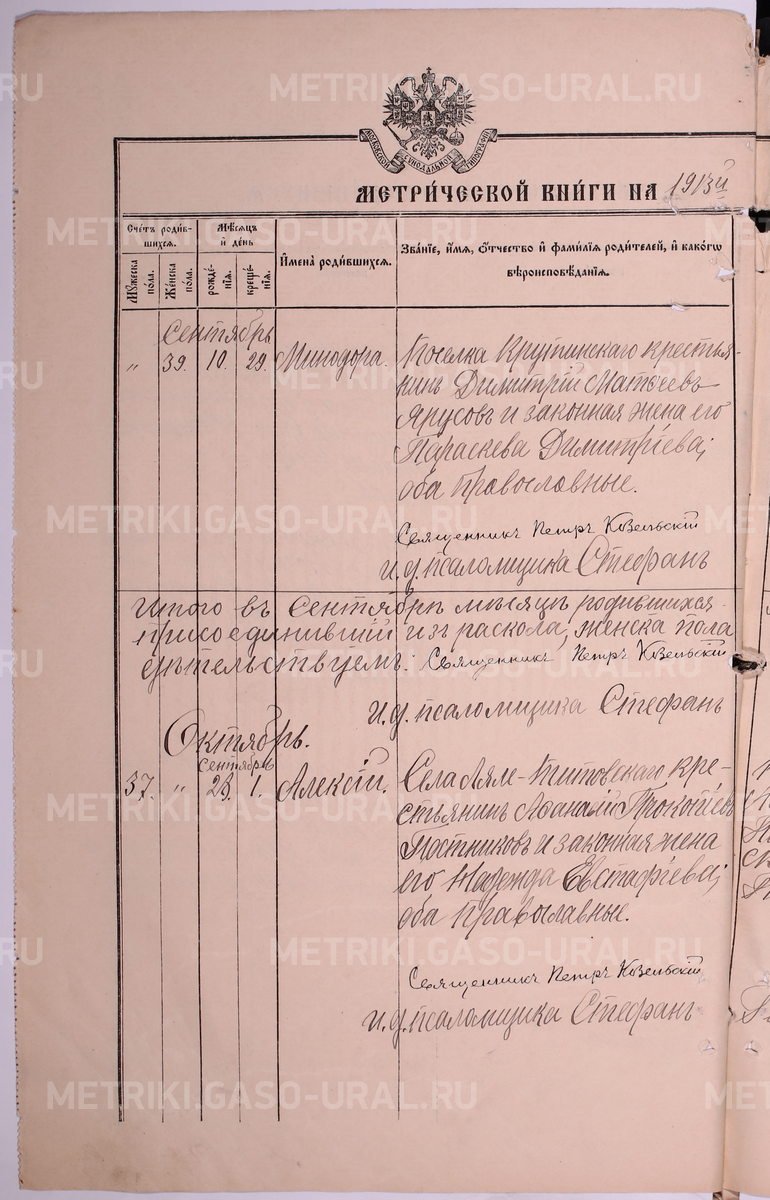 METRIKI.GASO-URAL.RU
МОСКОВСКОЙ СѴНОДАЛЬНОЙ ТИПОГРАФІИ
МЕТРИ́ЧЕСКОЙ КНИ́ГИ НА 1913й
Сче́тъ роди́в-
шихся.
Мѣ́сяцъ
и де́нь
Мꙋ́жеска по́ла.
Же́нска по́ла.
рожде́-
нія.
креще́-
нія.
И҆мена̀ роди́вшихся.
Зва́ніе, и҆́мя, Ѻ҆́тчество и҆ фами́лія роди́телей, и҆ како́гѡ
вѣроисповѣ́данія.
Сентябрь
„ 39. 10. 29. Минодора. Поселка Крутинскаго крестья-
нинъ Димитрій Матѳеевъ
Ярусовъ и законная жена его
Параскева Димитріева;
оба православные.
Священникъ Петръ Козельскій
И. д. псаломщика Стефанъ
Итого въ Сентябрѣ мѣсяцѣ родившихся
присоединившій изъ раскола, женска пола
дѣтельствуемъ: Священникъ Петръ Козельскій
И. д. псаломщика Стефанъ
Октябрь.
Сентябрь
37. „ 28. 1. Алексій. Села Ляле-Титовскаго кре-
стьянинъ Аѳанасій Прокопіевъ
Постниковъ и законная жена
его Надежда Евстафіева;
оба православные.
Священникъ Петръ Козельскій
И. д. псаломщика Стефанъ